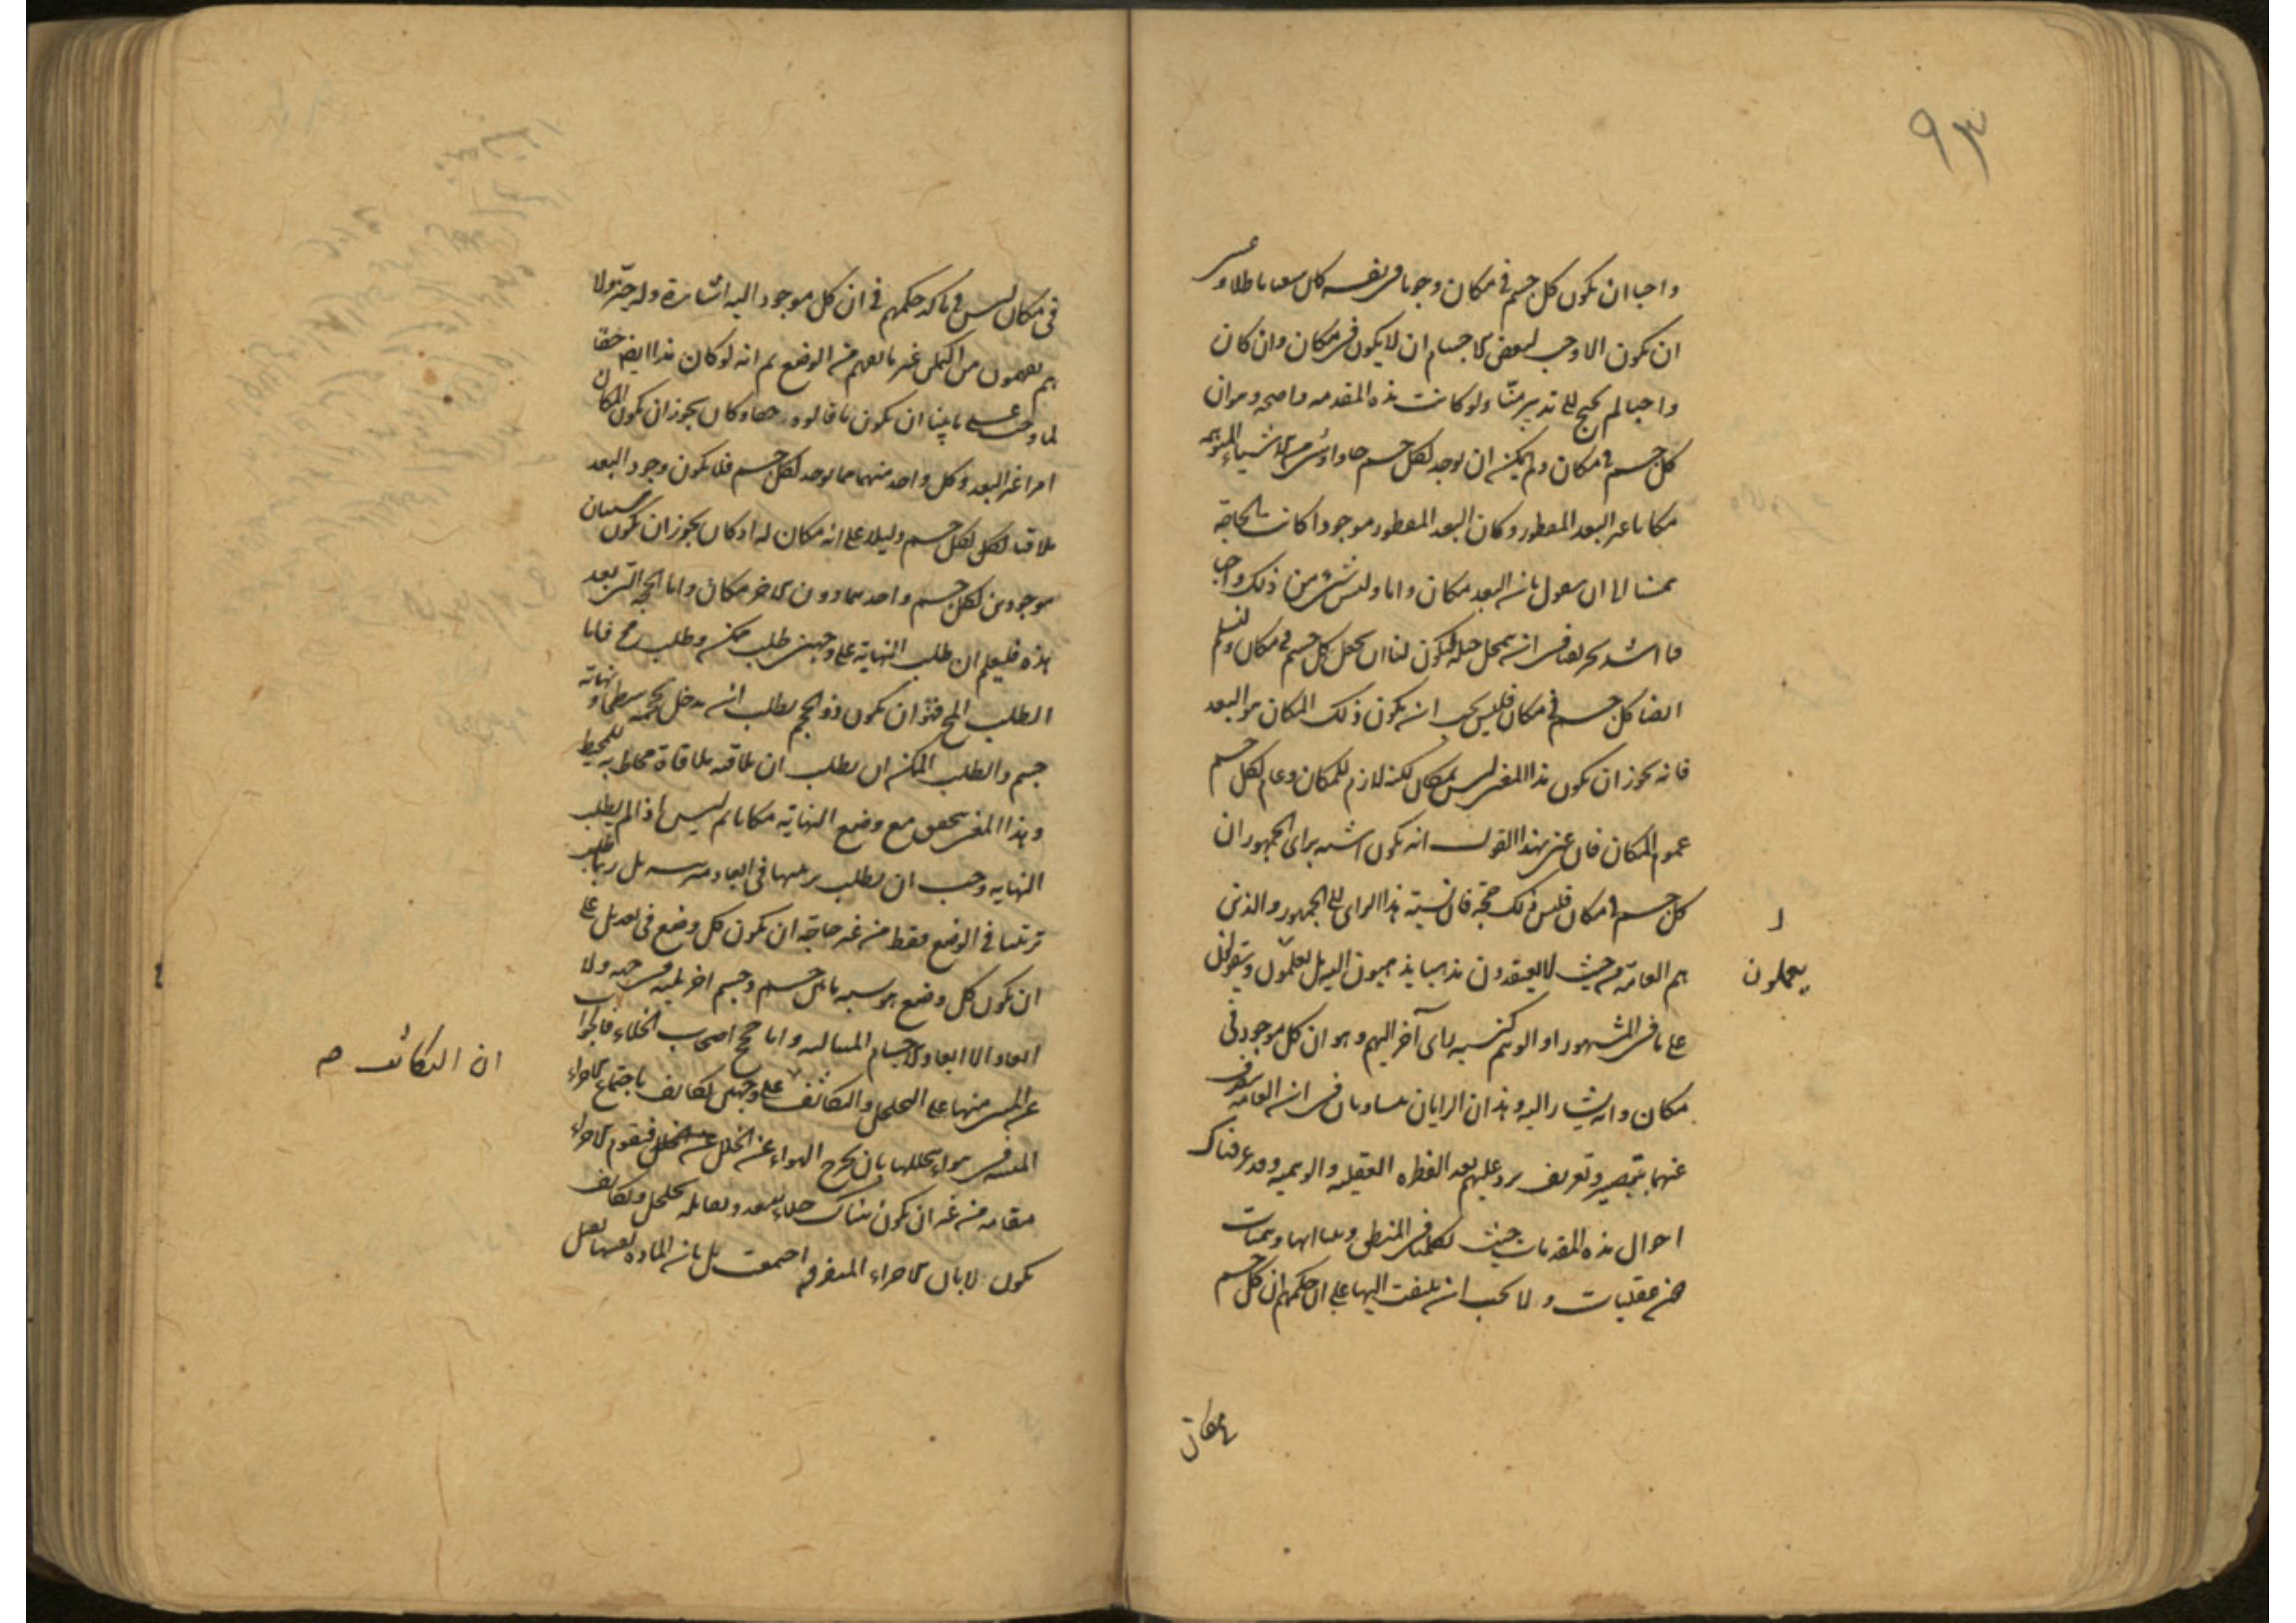 ٩٣
واجبا ان يكون كل جسم فى مكان وجوبا فى نفسه كان سعينا باطلا وعسى
ان يكون الاوجب لبعض الاجسام ان لا يكون فى مكان وان كان
واجبا لم يحتج الى تدبير منّا ولو كانت هذه المقدمه واضحه وهو ان
كل جسم فى مكان ولم يمكن ان يوجد لكل جسم حاو او شئ من الاشياء المتوهمه
مكانا غير البعد المفطور وكان البعد المفطور موجودا كانت الحاجة
تمسنا الى ان نقول بان البعد مكان واما وليس شئ من ذلك واجبا
فما اشد تحريفا فى ان نتمحل حيلة فيكون لنا ان نجعل كل جسم فى مكان ولنسلم
ايضا كل جسم فى مكان فليس يجب ان يكون ذلك المكان هو البعد
فانه يجوز ان يكون هذا المعنى ليس بمكان لكنه لازم للمكان وعام لكل جسم
عموم المكان فان عنى بهذا القول انه يكون اشبه براى الجمهور ان
كل جسم فى مكان فليس ذلك حجة فان نسبة هذا الراى الى الجمهور والذين
هم العامّة من حيث لا يعتقدون مذهبا يذهبون اليه بل يعلمون ويقولون
يعملون
على ما فى المشهور او الوهم كنسبة راى آخر اليهم وهو ان كل موجود فى
مكان وانه يشار اليه وهذان الرايان متساويان فى ان العامه تنصرف
عنهما بتبصير وتعريف يرد عليهم بعد الفطره العقليه والوهميه وقد عرفناك
احوال هذه المقدمات حيث تكلمنا فى المنطق وبينا انها وهميات
غير عقليات ولا يجب ان يلتفت اليها على ان حكمهم ان كل جسم
مكان
فى مكان ليس فى تاكد حكمهم فى ان كل موجود اليه اشارة وله حيّز ولا
هم يفهمون من المكان غير ما نفهم من الوضع ثم انه لو كان هذا ايضا حقا
لما وجب على ما بينا ان يكون ما قالوه حقا وكان يجوز ان يكون المكان
امرا غير البعد وكل واحد منهما مما يوجد لكل جسم فلا يكون وجود البعد
ملاقيا لكل جسم دليلا على انه مكان له اذ كان يجوز ان يكون شيئان
موجودين لكل جسم واحدهما دون الاخر مكان واما الحجه التى بعد
هذه فليعلم ان طلب النهاية على وجهين طلب ممكن وطلب مح فاما
الطلب المح فهو ان يكون ذو الحجم يطلب ان يدخل بحجمه سطحا ونهاية
جسم والطلب الممكن ان يطلب ان يلاقيه ملاقاة محاط به للمحيط
وهذا المعنى يتحقق مع وضع النهاية مكانا ثم ليس اذا لم يطلب
النهايه وجب ان يطلب ترتيبها فى ابعاد مترتبه بل ربما طلب
ترتيبا فى الوضع فقط من غير حاجة ان يكون كل وضع فى بعد بل على
ان يكون كل وضع هو نسبه ما بين جسم وجسم اخر يليه من جهه ولا
ابعاد الا ابعاد الاجسام المتتاليه واما حجج اصحاب الخلاء فالجواب
عن المبنى منها على التخلخل والتكاثف على وجهين تكاثف باجتماع الاجزاء
ان التكاثف صح
المنبثه فى هواء يتخللها بان يخرج الهواء عن الخلل فيقوم الاجزاء
مقامه من غير ان يكون هناك خلاء ويقابله تخلخل وتكاثف
يكون لا بان الاجزاء المتفرقه اجتمعت بل بان الماده نفسها تقبل